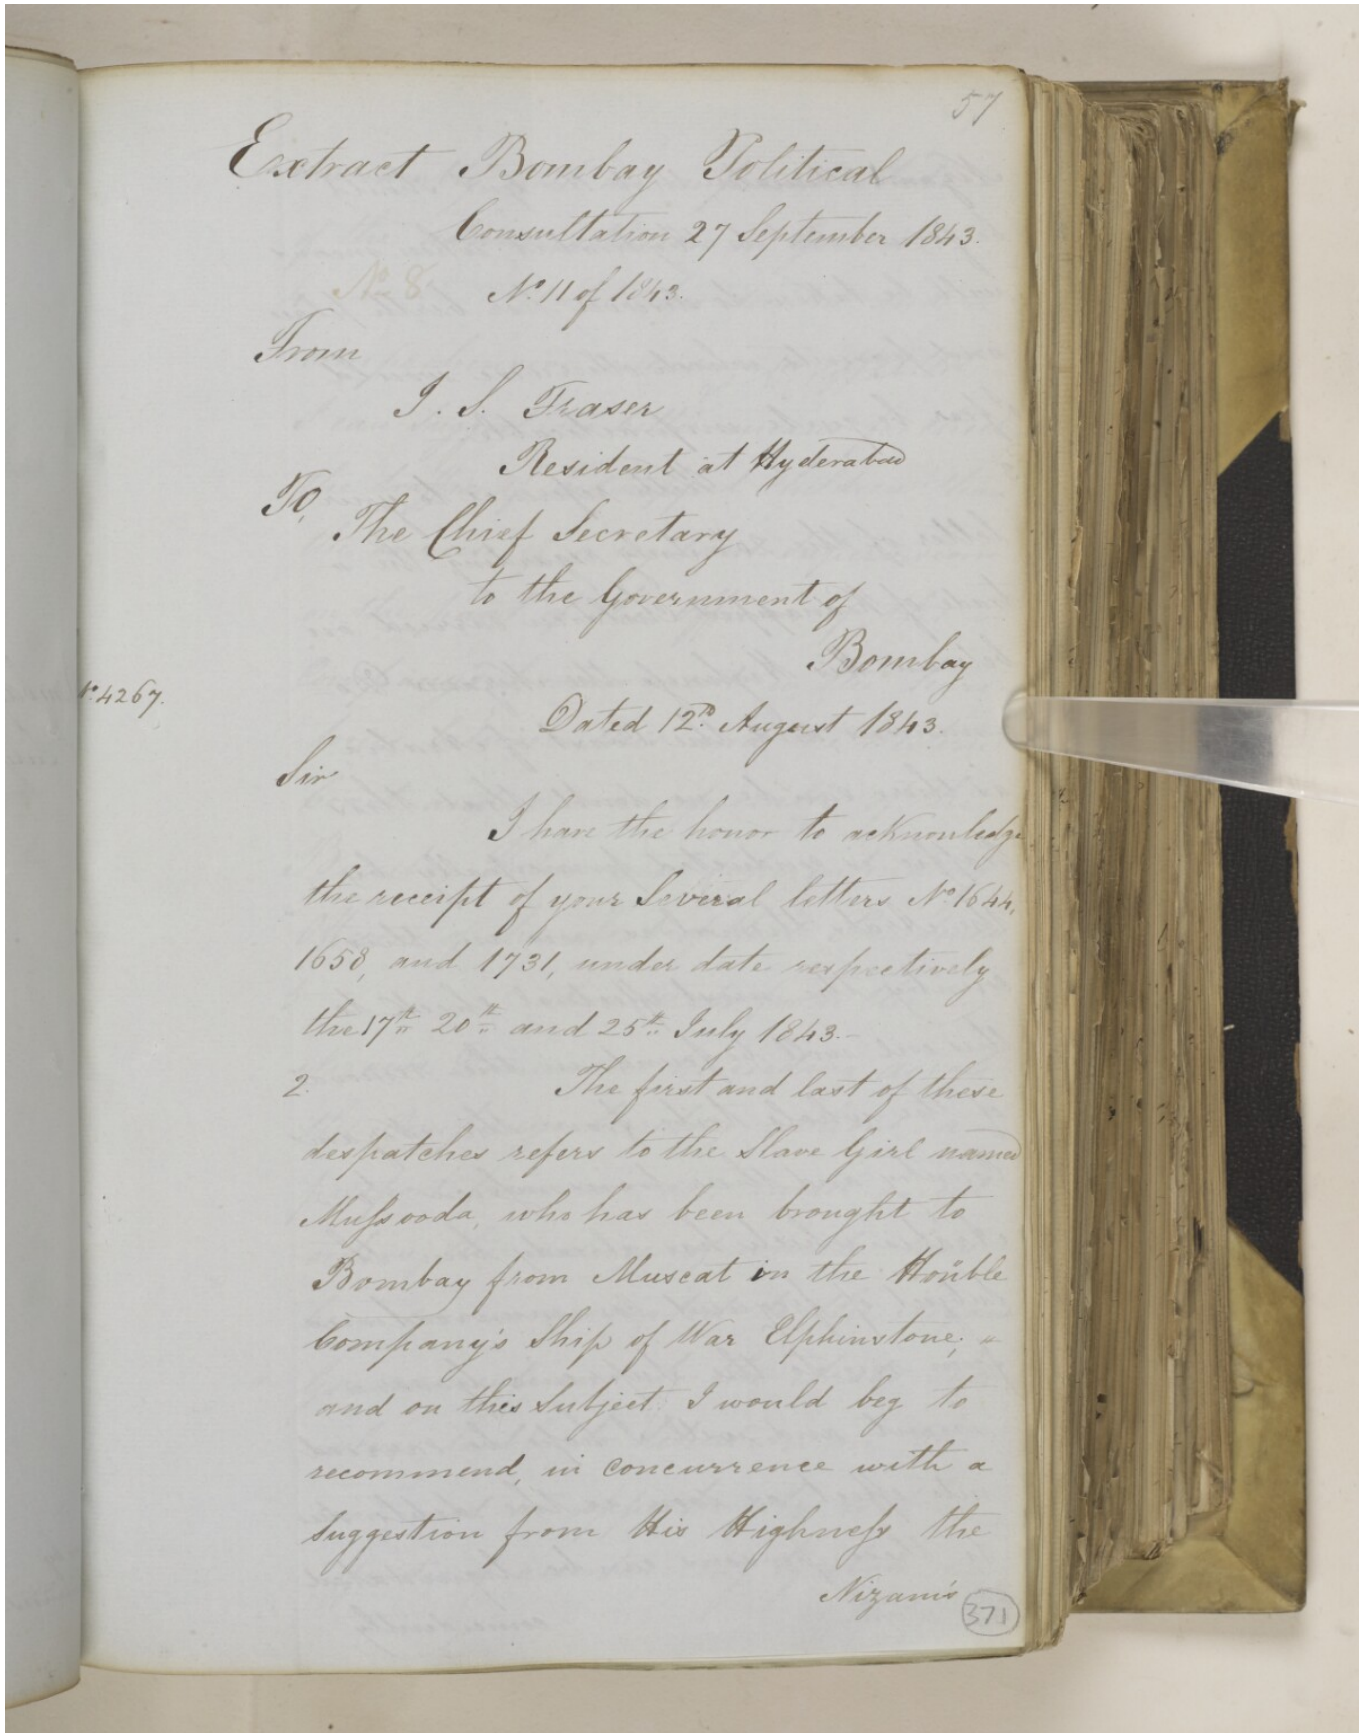 57
Extract Bombay Political
Consultation 27 September 1843.
No 8 No. 11 of 1843.
From
J. S. Fraser
Resident at Hyderabad
To,
The Chief Secretary
to the Government of
Bombay
No. 4267.
Dated 12th August 1843.
Sir
I have the honor to acknowledge
the receipt of your Several letters No 1644,
1658, and 1731, under date respectively
the 17th 20th and 25th July 1843.-
2. The first and last of these
despatches refers to the Slave Girl named
Mussooda, who has been brought to
Bombay from Muscat in the Honble
Company's Ship of War Elphinstone;
and on this subject I would beg to
recommend, in concurrence with a
suggestion from His Highness the
Nizam's
371